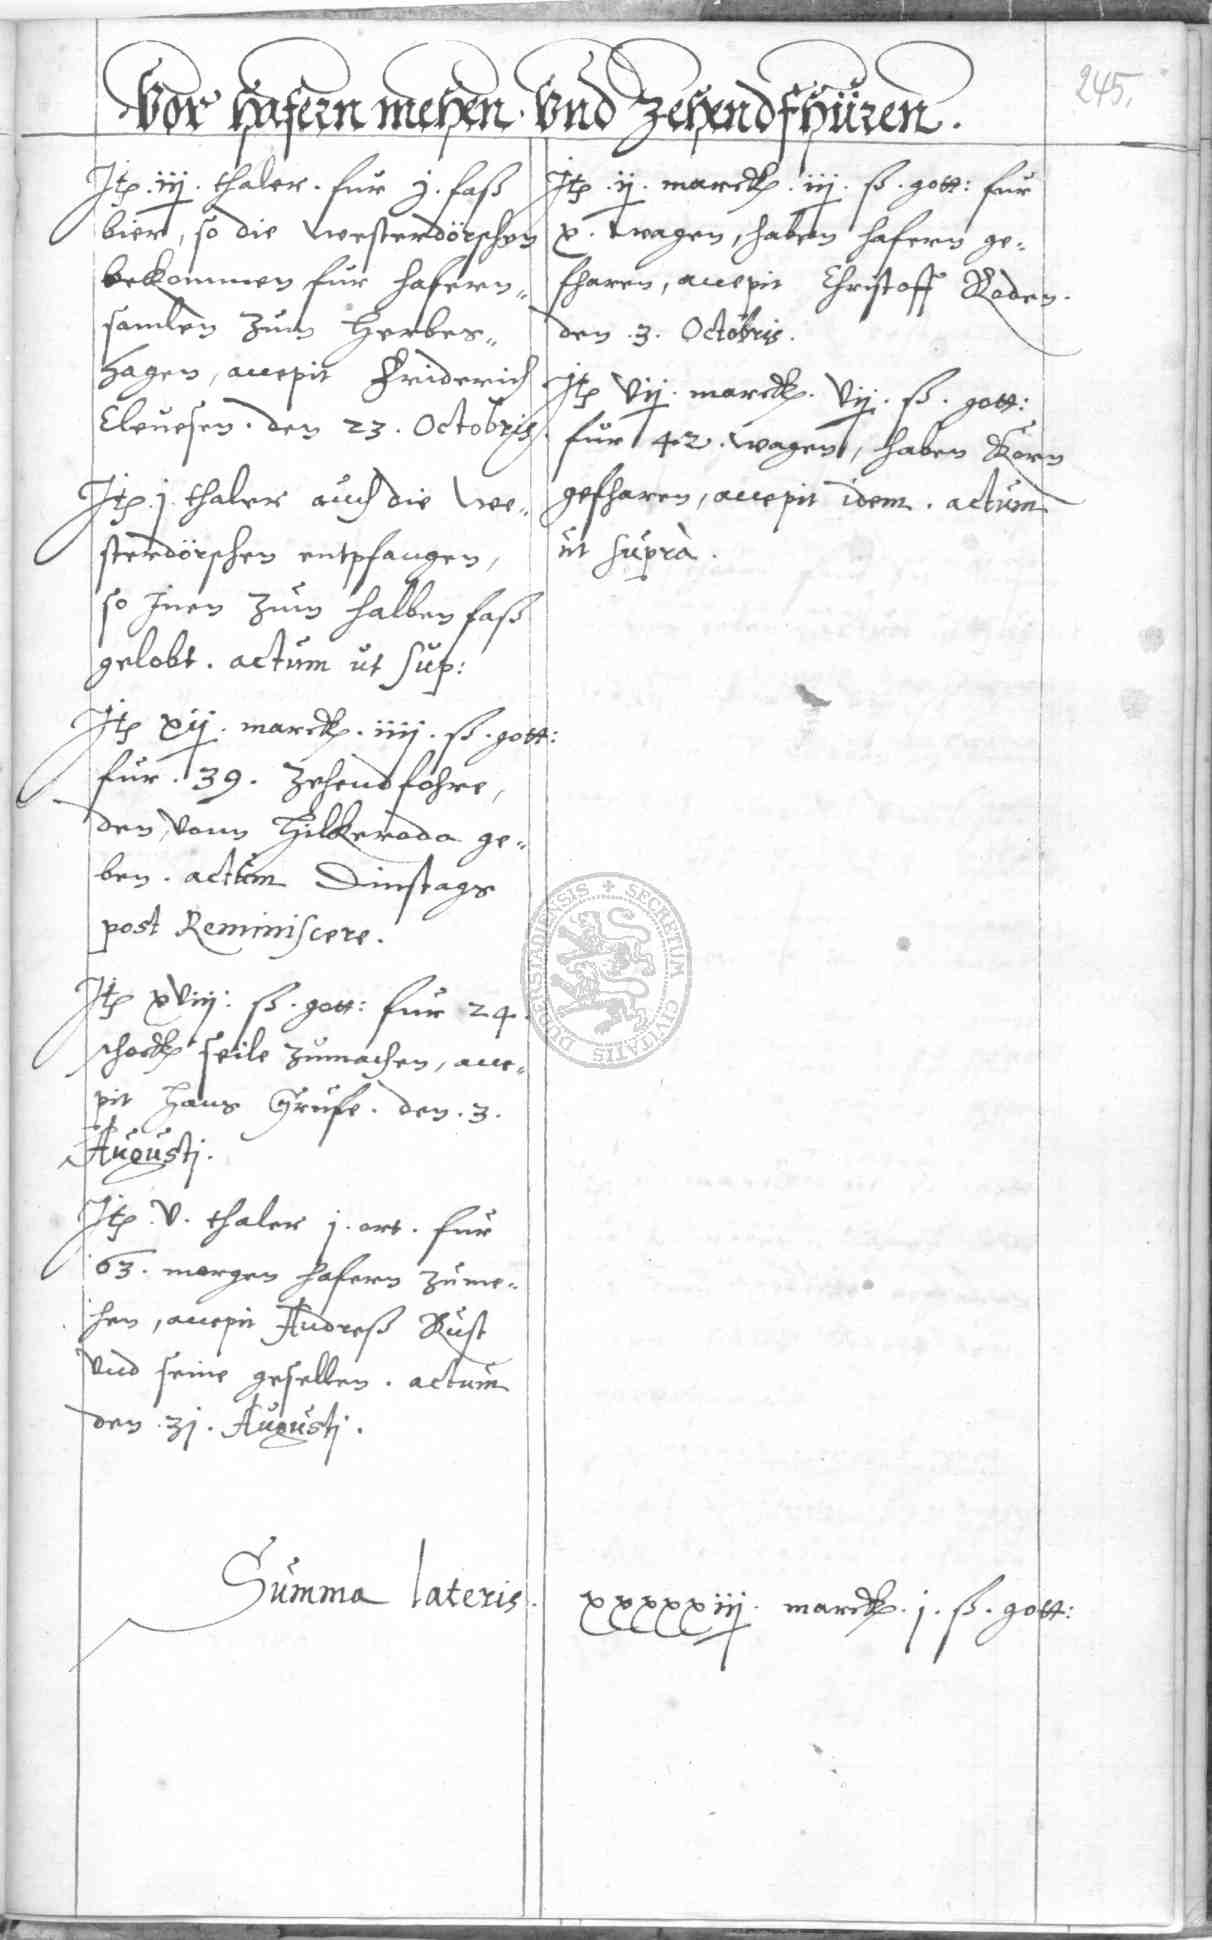 245.
Vor hafern mehen vnd Zehendfhüren.
Itp .iij. thaler . fur j. faß
bier, so die westerdörschen
bekommen für hafern„
samlen zum Herbes„
hagen, accepit Friderich
Eleuesen. den 23. Octobris.
Itp .j. thaler auch die we„
sterdörschen entpfangen,
so jnen zum halben faß
gelobt. actum ut sup:
Itp xij. marck. iiij. ß. gott:
für .39. Zehendfohre,
den vonn Hilkeroda ge„
ben. actum Dinstags
post Reminiscere.
Itp xviij: ß. gott: fur 24.
schock seile zumachen, acce„
pit Hans Grüse. den .3.
Augustj.
Itp .v. thaler j. ort. für
63. morgen hafern zume„
hen, accepit Andreß Rust
vnd seine gesellen. actum
den .3j. Augustj.
Itp .ij. marck. iij. ß. gott: fur
x. wagen, haben hafern ge„
fharen, accepit Christoff Roden.
den .3. Octobris.
Itp vij. marck. vij. ß. gott:
für 42. wagen, haben Korn
gefharen, accepit idem. actum
ut suprà.
Summa lateris. xxxxxiij. marck. j. ß. gott:
SECRETUM CIVITATIS DUDERSTADIENSIS